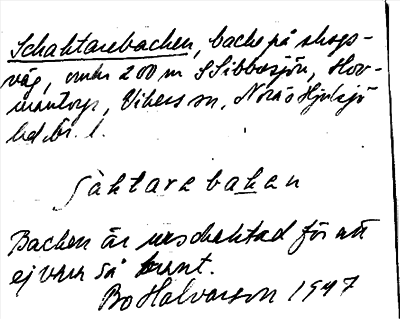 Schaktarebacken, backe på skogs-
väg, omkr 200 m S Sibbosjön, Hov-
mantorp, Vikers sn, Nora o Hjulsjö
bd, Ör. l.
sàktarebaken
Backen är urschaktad för att
ej vara så brant.
Bo Halvarson 1947